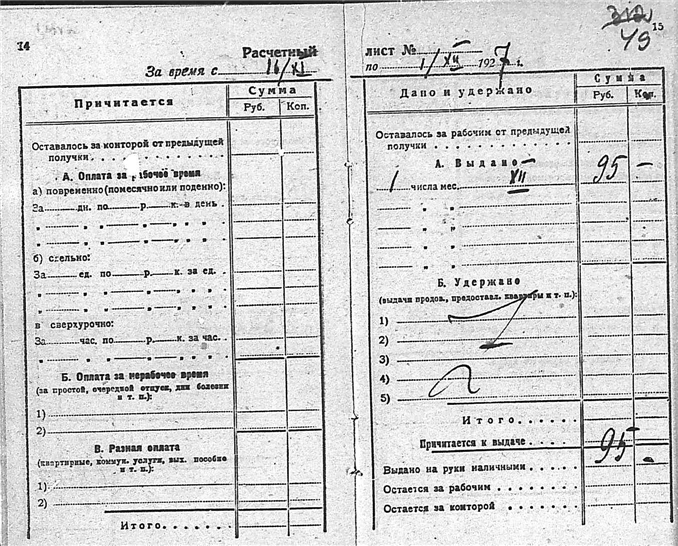 14
Расчетный
За время с 16/XI
Причитается
Сумма
Руб. Коп.
Оставалось за конторой от предыдущей
получки
А. Оплата за рабочее время
а) повременно (помесячно или поденно):
За дн. по р. к. в день
" " " "
" " " "
б) сдельно:
За ед. по р. к. за ед.
" " " "
" " " "
в сверхурочно:
За час. по р. к. за час.
" " " "
Б. Оплата за нерабочее время
(за простой, очередной отпуск, дни болезни
и т. п.):
1)
2)
В. Разная оплата
(квартирные, коммун. услуги, вых. пособие
и т. п.):
1)
2)
Итого
312
49
15
лист №
по 1/XII 1927 г.
Дано и удержано
Сумма
Руб. Коп.
Оставалось за рабочим от предыдущей
получки
А. Выдано
1 числа мес. XII 95 —
" "
" "
" "
" "
Б. Удержано
(выдачи продов., предоставл. квартиры и т. п.):
1)
2)
3)
4)
5)
Итого
Причитается к выдаче 95 -
Выдано на руки наличными
Остается за рабочим
Остается за конторой